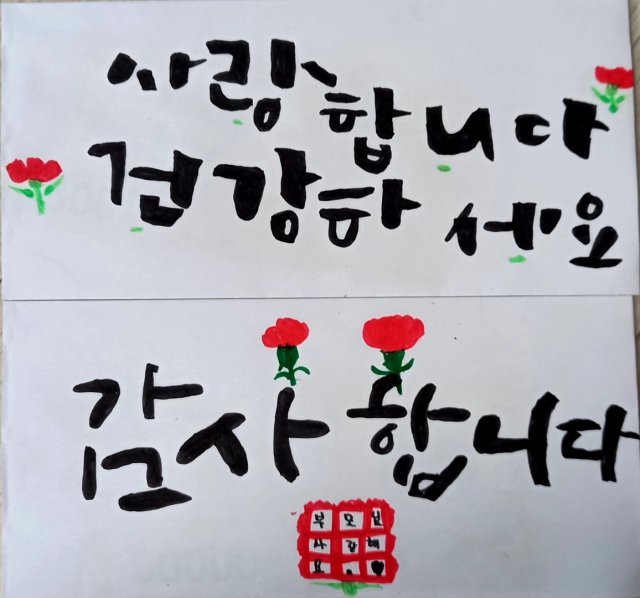 사랑합니다
건강하세요
감사합니다
부모님
사랑해
요.♥